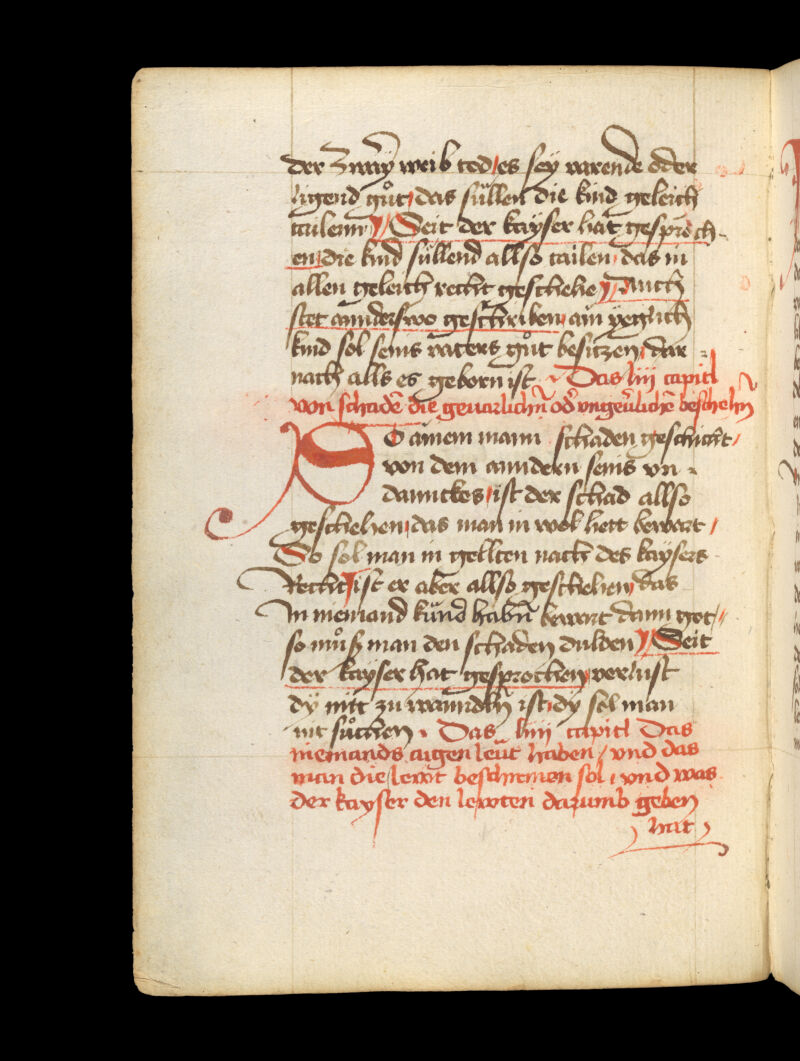 der zwaÿ weib tod / es sey varende oder
ligend gůt / das süllen die kind geleich
tailenn / Seit der kayser hat gesproch-
en / die kind süllend allso tailen / das in
allen geleich recht geschehe / Auch
stet annderswo geschriben / ain yeglich
kind sol seins vaters gůt besitzen / dar =
nach alls es geborn ist · Das liij capitl
von schadē die gevarlichn̄ od' vngeūlichē beschehn̄
SO ainem mann schaden geschicht /
von dem anndern seins vn =
dannckes / ist der schad allso
geschehen / das man in wol hett bewart /
So sol man in gellten nach des kaysers
Recht / ist er aber allso geschehen / das
In niemand künd habn̄ bewart dann got /
so můß man den schaden dulden / Seit
der kayser hat gesprochen / verlust
dy nitt zu wanndln̄ ist / dy sol man
nit sůchen · Das liiij capitl Das
niemands aigen leüt haben / vnd das
man die lewt beschirmen sol / vnd was
der kayser den lewten darumb geben
hat